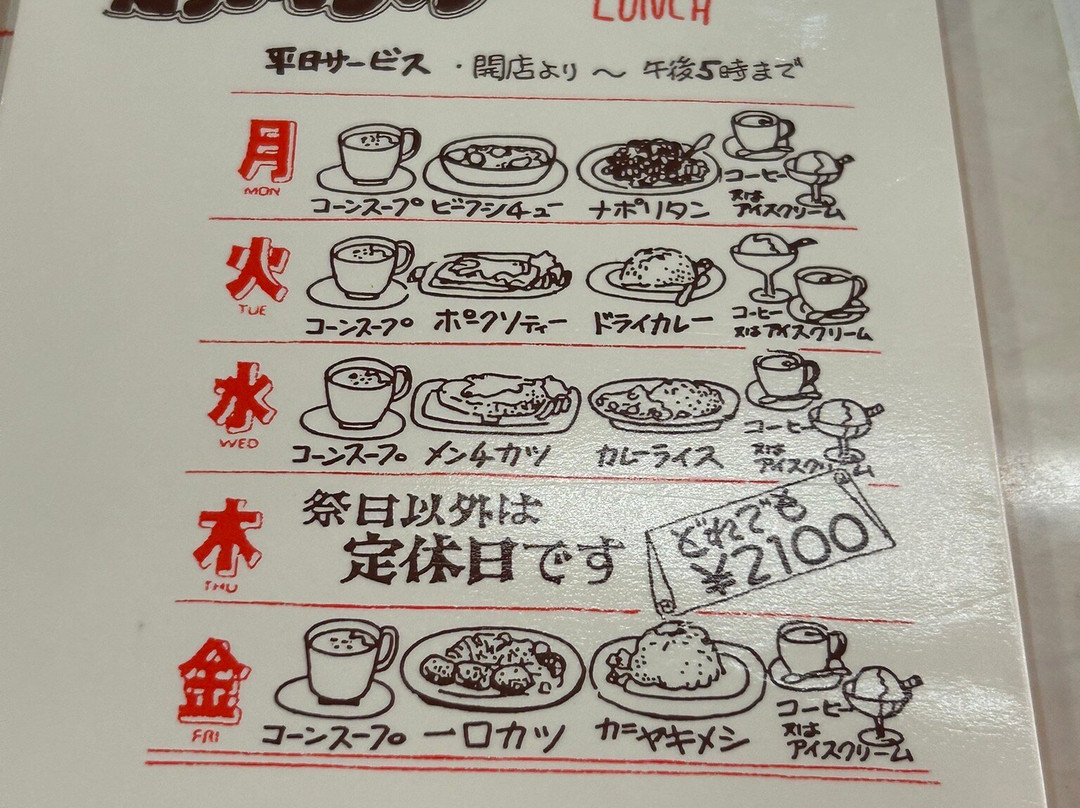 LUNCH
平日サービス ・開店より 〜 午後5時まで
月
MON
コーンスープ ビーフシチュー ナポリタン コーヒー
又は
アイスクリーム
火
TUE
コーンスープ ポークソティー ドライカレー コーヒー
又はアイスクリーム
水
WED
コーンスープ メンチカツ カレーライス コーヒー
又は
アイスクリーム
木
THU
祭日以外は
定休日です
どれでも
¥2100
金
FRI
コーンスープ 一口カツ カニヤキメシ コーヒー
又は
アイスクリーム